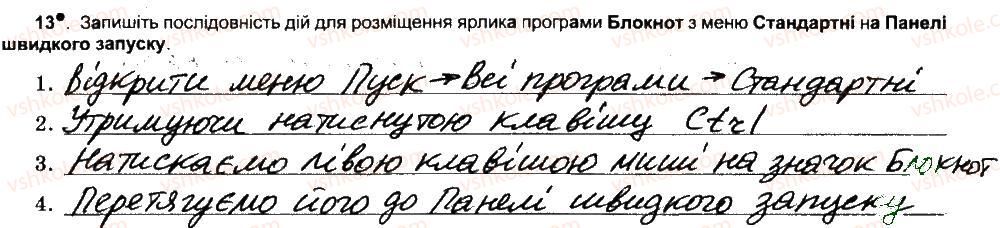 13●. Запишіть послідовність дій для розміщення ярлика програми Блокнот з меню Стандартні на Панелі
швидкого запуску.
1. Відкрити меню Пуск → Всі програми → Стандартні
2. Утримуючи натиснутою клавішу Ctrl
3. Натискаємо лівою клавішою миші на значок Блокнот
4. Перетягуємо його до Панелі швидкого запуску